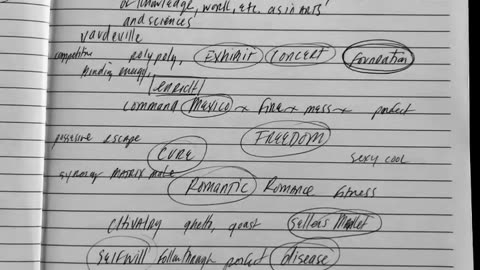 of knowledge, work, etc. as in arts
and sciences
vaudeville
competition polypoly, EXHIBIT CONCERT foundation
binding energy,
enrich
command MEXICO x Fire x mess x perfect
possessive escape FREEDOM
CURE sexy cool
synergy MATRIX mate
ROMANTIC Romance fitness
Chivalry ghetto, quest Seller's Market
Self Will follow through perfect disease